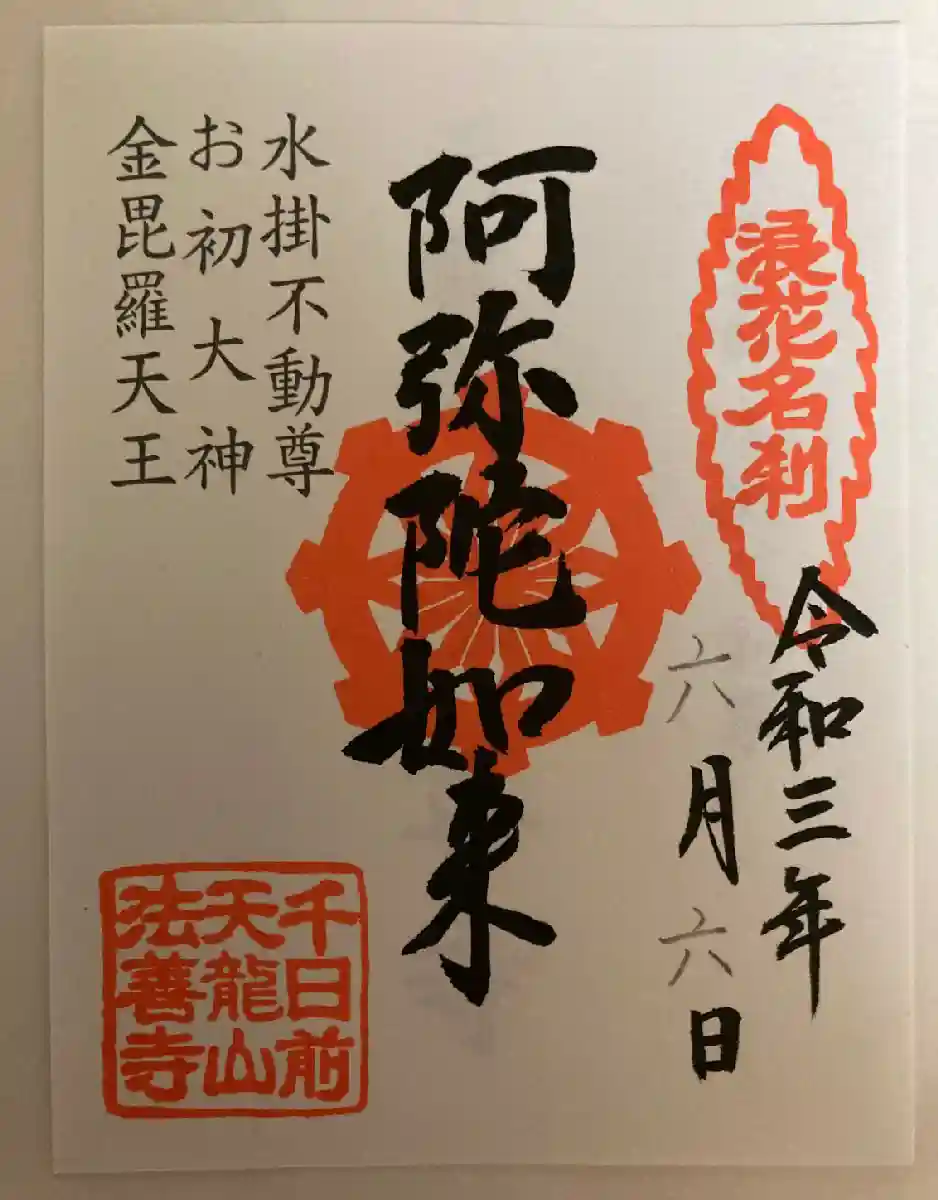 浪花名刹
令和三年
六月六日
阿弥陀如来
水掛不動尊
お初大神
金毘羅天王
千日前
天龍山
法善寺